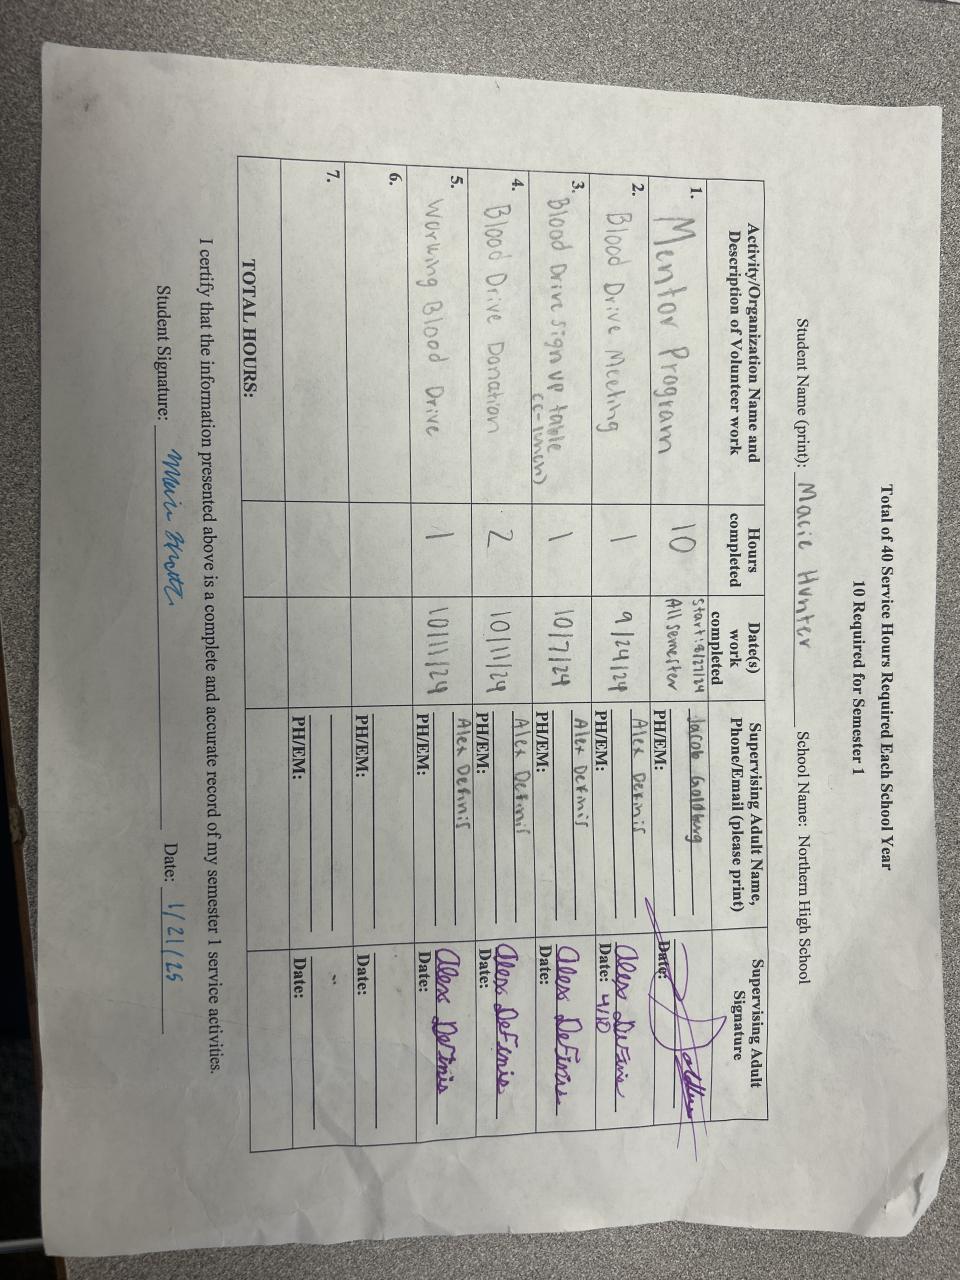 Total of 40 Service Hours Required Each School Year
10 Required for Semester 1
Student Name (print): Macie Hunter School Name: Northern High School
Activity/Organization Name and Description of Volunteer work
Hours completed
Date(s) work completed
Supervising Adult Name, Phone/Email (please print)
Supervising Adult Signature
1. Mentor Program
10
Start: 8/27/24
All semester
Jacob Goldberg
PH/EM:
Date:
2. Blood Drive Meeting
1
9/24/24
Alex Definis
PH/EM:
Alex Definis
Date: 4/10
3. Blood Drive sign up table
(c-lunch)
1
10/7/24
Alex Definis
PH/EM:
Alex Definis
Date:
4. Blood Drive Donation
2
10/11/24
Alex Definis
PH/EM:
Alex Definis
Date:
5. Working Blood Drive
1
10/11/24
Alex Definis
PH/EM:
Alex Definis
Date:
6.
PH/EM:
Date:
7.
PH/EM:
Date:
TOTAL HOURS:
I certify that the information presented above is a complete and accurate record of my semester 1 service activities.
Student Signature: Macie Hunter Date: 1/21/25